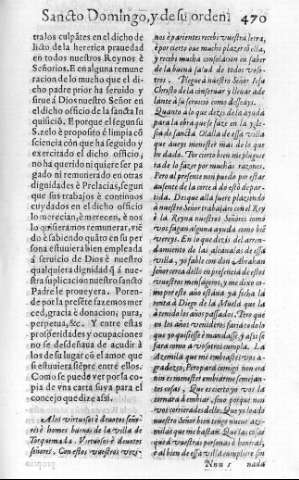 Sancto Domingo, y de su orden. 470
tra los culpātes en el dicho de
licto de la heretica prauedad
en todos nuestros Reynos è
Señorios. E en alguna remune
racion de lo mucho que el di-
cho padre prior ha seruido y
sirue á Dios nuestro Señor en
el dicho officio de la sancta In
quisiciõ. E porque el segun su
S. zelo è proposito è limpia cõ
sciencia cõn que ha seguido y
exercitado el dicho officio,
no ha querido ni quiere ser pa
gado ni remunerado en otras
dignidades è Prelacias, segun
que sus trabajos è continuos
cuydados en el dicho officio
lo merecian, è merecen, è nos
lo quisieramos remunerar, viē
do è sabiendo quāto en su per
sona estuuiera bien empleada
á seruicio de Dios è nuestro
qualquiera dignidad q̃ á nue-
stra suplicacion nuestro sancto
Padre le proueyera. Poren-
de por la presēte fazemos mer
ced, gracia è donacion, pura,
perpetua, &c. Y entre estas
prosperidades y ocupaciones
no se desdeñaua de acudir à
los de su lugar cõ el amor que
si estuuiera siẽpre entre ellos.
Como se puede ver por la co-
pia de vna carta suya para el
concejo que dize assi.
A los virtuosos è deuotos seño-
res è homes buenos de la villa de
Torquemada. Virtuosos è deuotos
señores. Con estos vuestros vezi-
nos è parientes recebi vuestra letra,
è por cierto oue mucho plazer cõ ella,
y recebo mucha consolacion en saber
de la buena salud de todos voso-
tros. Plegue à nuestro Señor Jesu
Christo de la conseruar y lleuar ade
lante à su seruicio como desseays.
Quanto à lo que dezis de la ayuda
para la obra que se faze en la ygle-
sia de sancta Olalla de essa villa
que ayays menester mas de lo que hā
dado. Por cierto bien me pluguie
ra de lo fazer por muchas razones.
Pero al presente non puedo por estar
ausente de la corte à do esto se par-
tida. Desque allà fuere plaziendo
à nuestro Señor trabajare con el Rey
è la Reyna nuestros Señores como
vos fagan alguna ayuda como bie
vereys. En lo que dezis del arren-
damiento de las alcaualas de essa
villa, yo fable con don Abrahan
Señor cerca dello en presencia de estos
vuestros mensageros, y me dixo co-
mo por este año estaua ya fecha la
renta à Diego de la Muela que la
à tenido los años passados. Pero que
en los años venideros farà todo lo
que yo quisiere è mandare, y assi se
farà como à vosotros cumple. La
Azemila que me embiastes vos a-
gradezco, Pero para comigo non era
nin es menester embiarme semejan-
tes cosas,
Nnn 1 nada